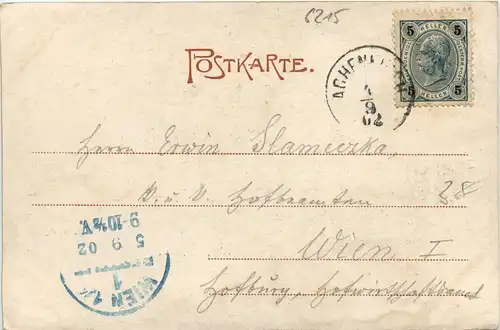 6215
POSTKARTE.
5 HELLER 5
5 HELLER 5
ACHENKIRCH
4
9
02
Herrn Erwin Slameczka
K. u. K. Hofbeamten
38
Wien I
Hofburg, Hofwirthschaftsamt
WIEN 1/1
1
5 9 02
9-10½V.